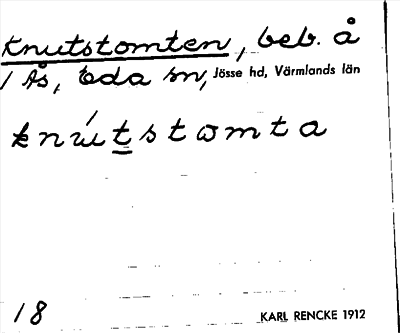 Knutstomten, beb. å
1 Ås, Eda sn, Jösse hd, Värmlands län
knú̵tstωmta
18
KARL RENCKE 1912